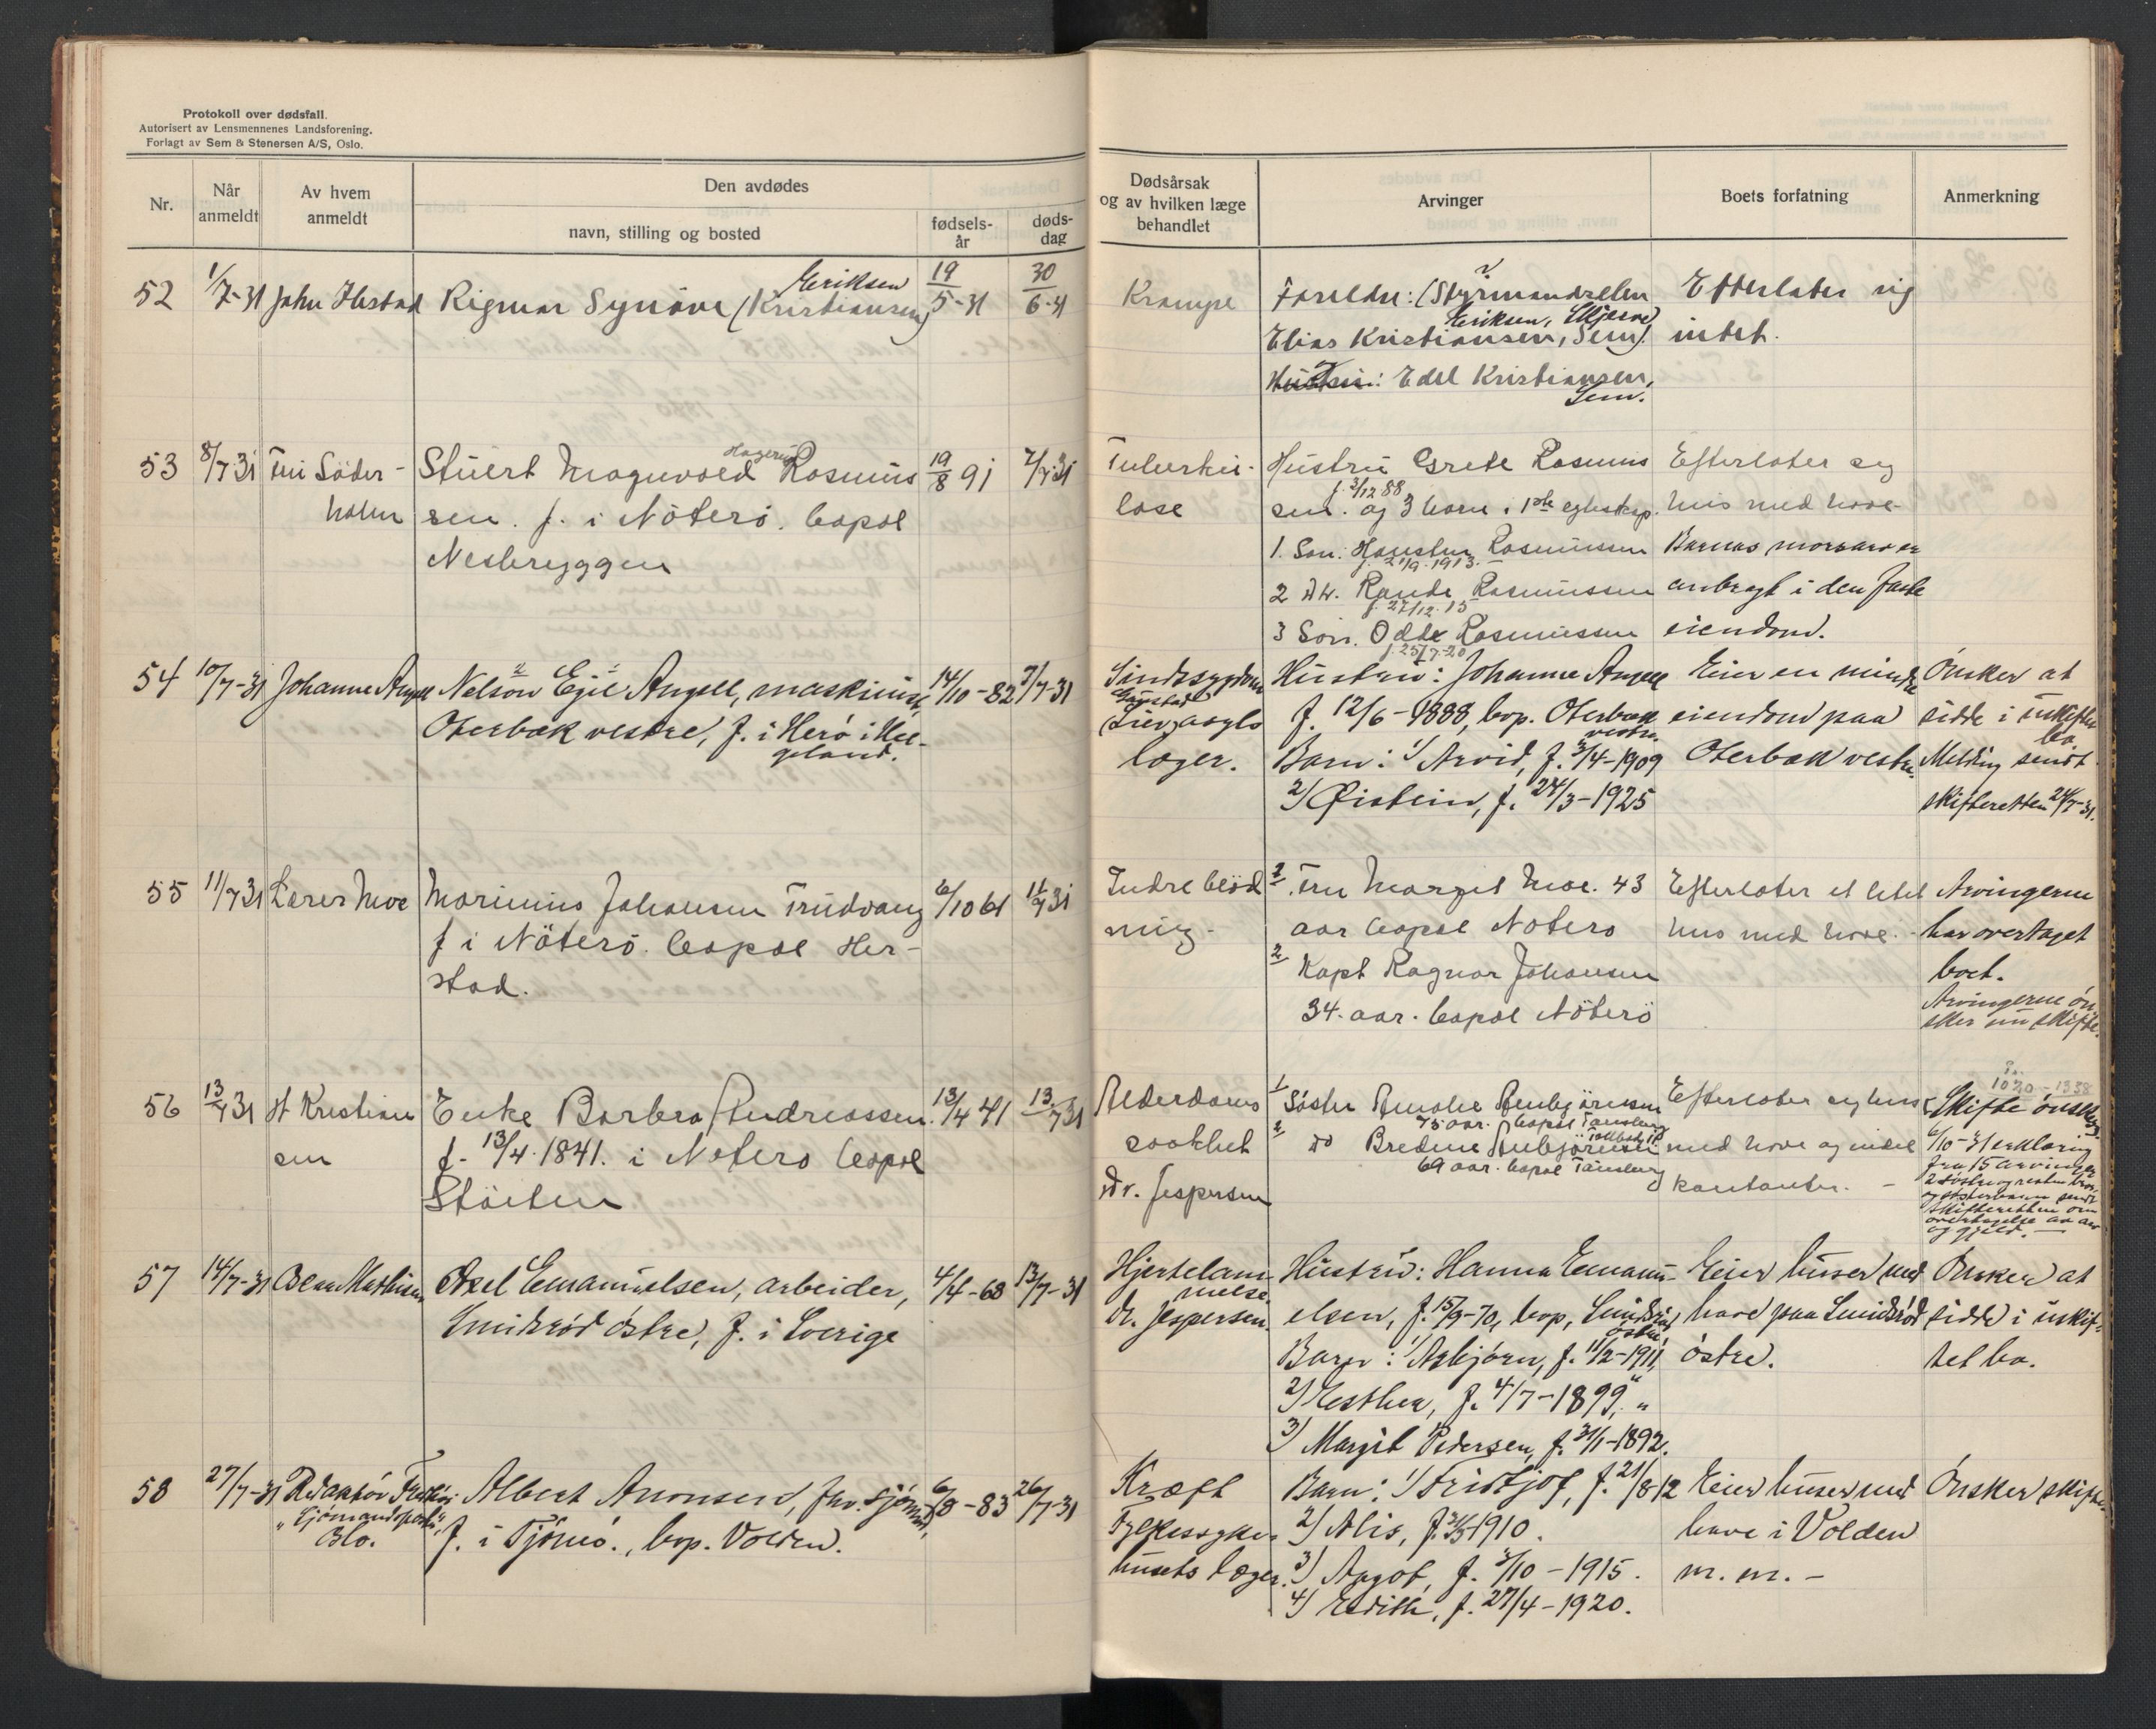 Protokoll over dødsfall.
Autorisert av Lensmennenes Landsforening.
Forlagt av Sem & Stenersen A/S, Oslo.
Nr.
Når anmeldt
Av hvem anmeldt
Den avdødes
navn, stilling og bosted
fødsels-år
døds-dag
52 1/7-31 John Herstad Rigmor Synöve (Kristiansen) Eriksen 19/5-31 30/6-31
53 8/7 31 Fru Söder- Stuert Magnvald Hagerup Rasmus 19/8 91 7/7 31
holm sen. f. i Nöterö. bopæl
Nesbryggen
54 10/7-31 Johanne Angell Nelson Egil Angell, maskinist, 14/10-82 7/7-31
Oterbæk vestre, f. i Herö i Hel-
geland.
55 11/7 31 Lærer Moe Marinius Johansen Trudvang 6/10 61 11/7 31
f i Nöterö. bopæl Her-
stad.
56 13/7 31 H Kristian Enke Barbra Andreassen. 13/4 41 13/7 31
sen f. 13/4 1841. i Nöterö bopæl
57 14/7-31 Mathisen Axel Emanuelsen, arbeider, 4/4-68 13/7-31
Smidsröd östre, f. i Sverige
58 27/7-31 Redaktör Albert Aronsen, fhv. sjömand, 6/8-83 26/7-31
Oslo. f. i Tjömö., bop. Volden.
Dødsårsak
og av hvilken læge
behandlet
Arvinger
Boets forfatning
Anmerkning
Krampe Foreldre: (Styrmandselev Efterlater sig
Eriksen,
Elias Kristiansen, Sem). intet.
Edel Kristiansen,
Sem.
Tuberku- Hustru Grete Rasmus Efterlater seg
f. 3/12 88
lose sen. og 3 barn i 1ste egteskap. hus med have-
1. Søn: Rasmussen Barnas morsarv er
f. 21/9. 1913.
2 Rasmussen anbragt i den faste
f. 27/12. 15
3 Sön. Odd Rasmussen eiendom.
f. 25/7-20
Sindssygdom Hustru: Johanne Angell Eier en mindre Önsker at
Gaustad
f. 12/6-1888, bop. Oterbæk eiendom paa sidde i uskiftet
vestre. bo
læger. Barn: 1/ Arvid, f. 3/4-1909 Oterbæk vestre. Melding sendt
2) Øistein, f. 24/3-1925 skifteretten 24/7-31.
Indre blød 1. Fru Margit Moe. 43 Efterlater et litet Arvingerne
ning- aar bopæl Nöterö hus med have. har overtaget
2. Kapt Ragnar Johansen boet.
34. aar. bopæl Nöterö Arvingerne ön-
sker nu skifte.
1020-1338
Alderdoms 1 Söster Amalie Efterlater seg hus Skifte önskes
75 aar. bopæl Tönsberg
2 do Bredine med have og endel 6/10-31 erklæring
69 aar. bopæl Tönsberg fra 15 arvinger
Dr. Jespersen kontanter. -
skifteretten om
overtagelse av arv
og gjeld.-
Hjertelam- Hustru: Hanna Emanu- Eier huser med Önsker at
melse.
dr. Jespersen. elsen, f. 15/9-70, bop. Smidsröd have paa Smidsröd sidde i uskif-
östre,
Barn: 1/ Asbjörn, f. 11/2-1911, östre. tet bo.
2) Esther, f. 4/7-1899, "
3) Margit Pedersen, f. 31/1-1892.
Kræft Barn: 1) Fridtjof, f. 21/8 12 Eier huser med Önsker skifte.
Fylkessyke- 2) Alis, f. 1910. have i Volden
husets læger. 3) Aagot, f. 3/10-1915. m. m. -
4) Edith, f. 27/4-1920.